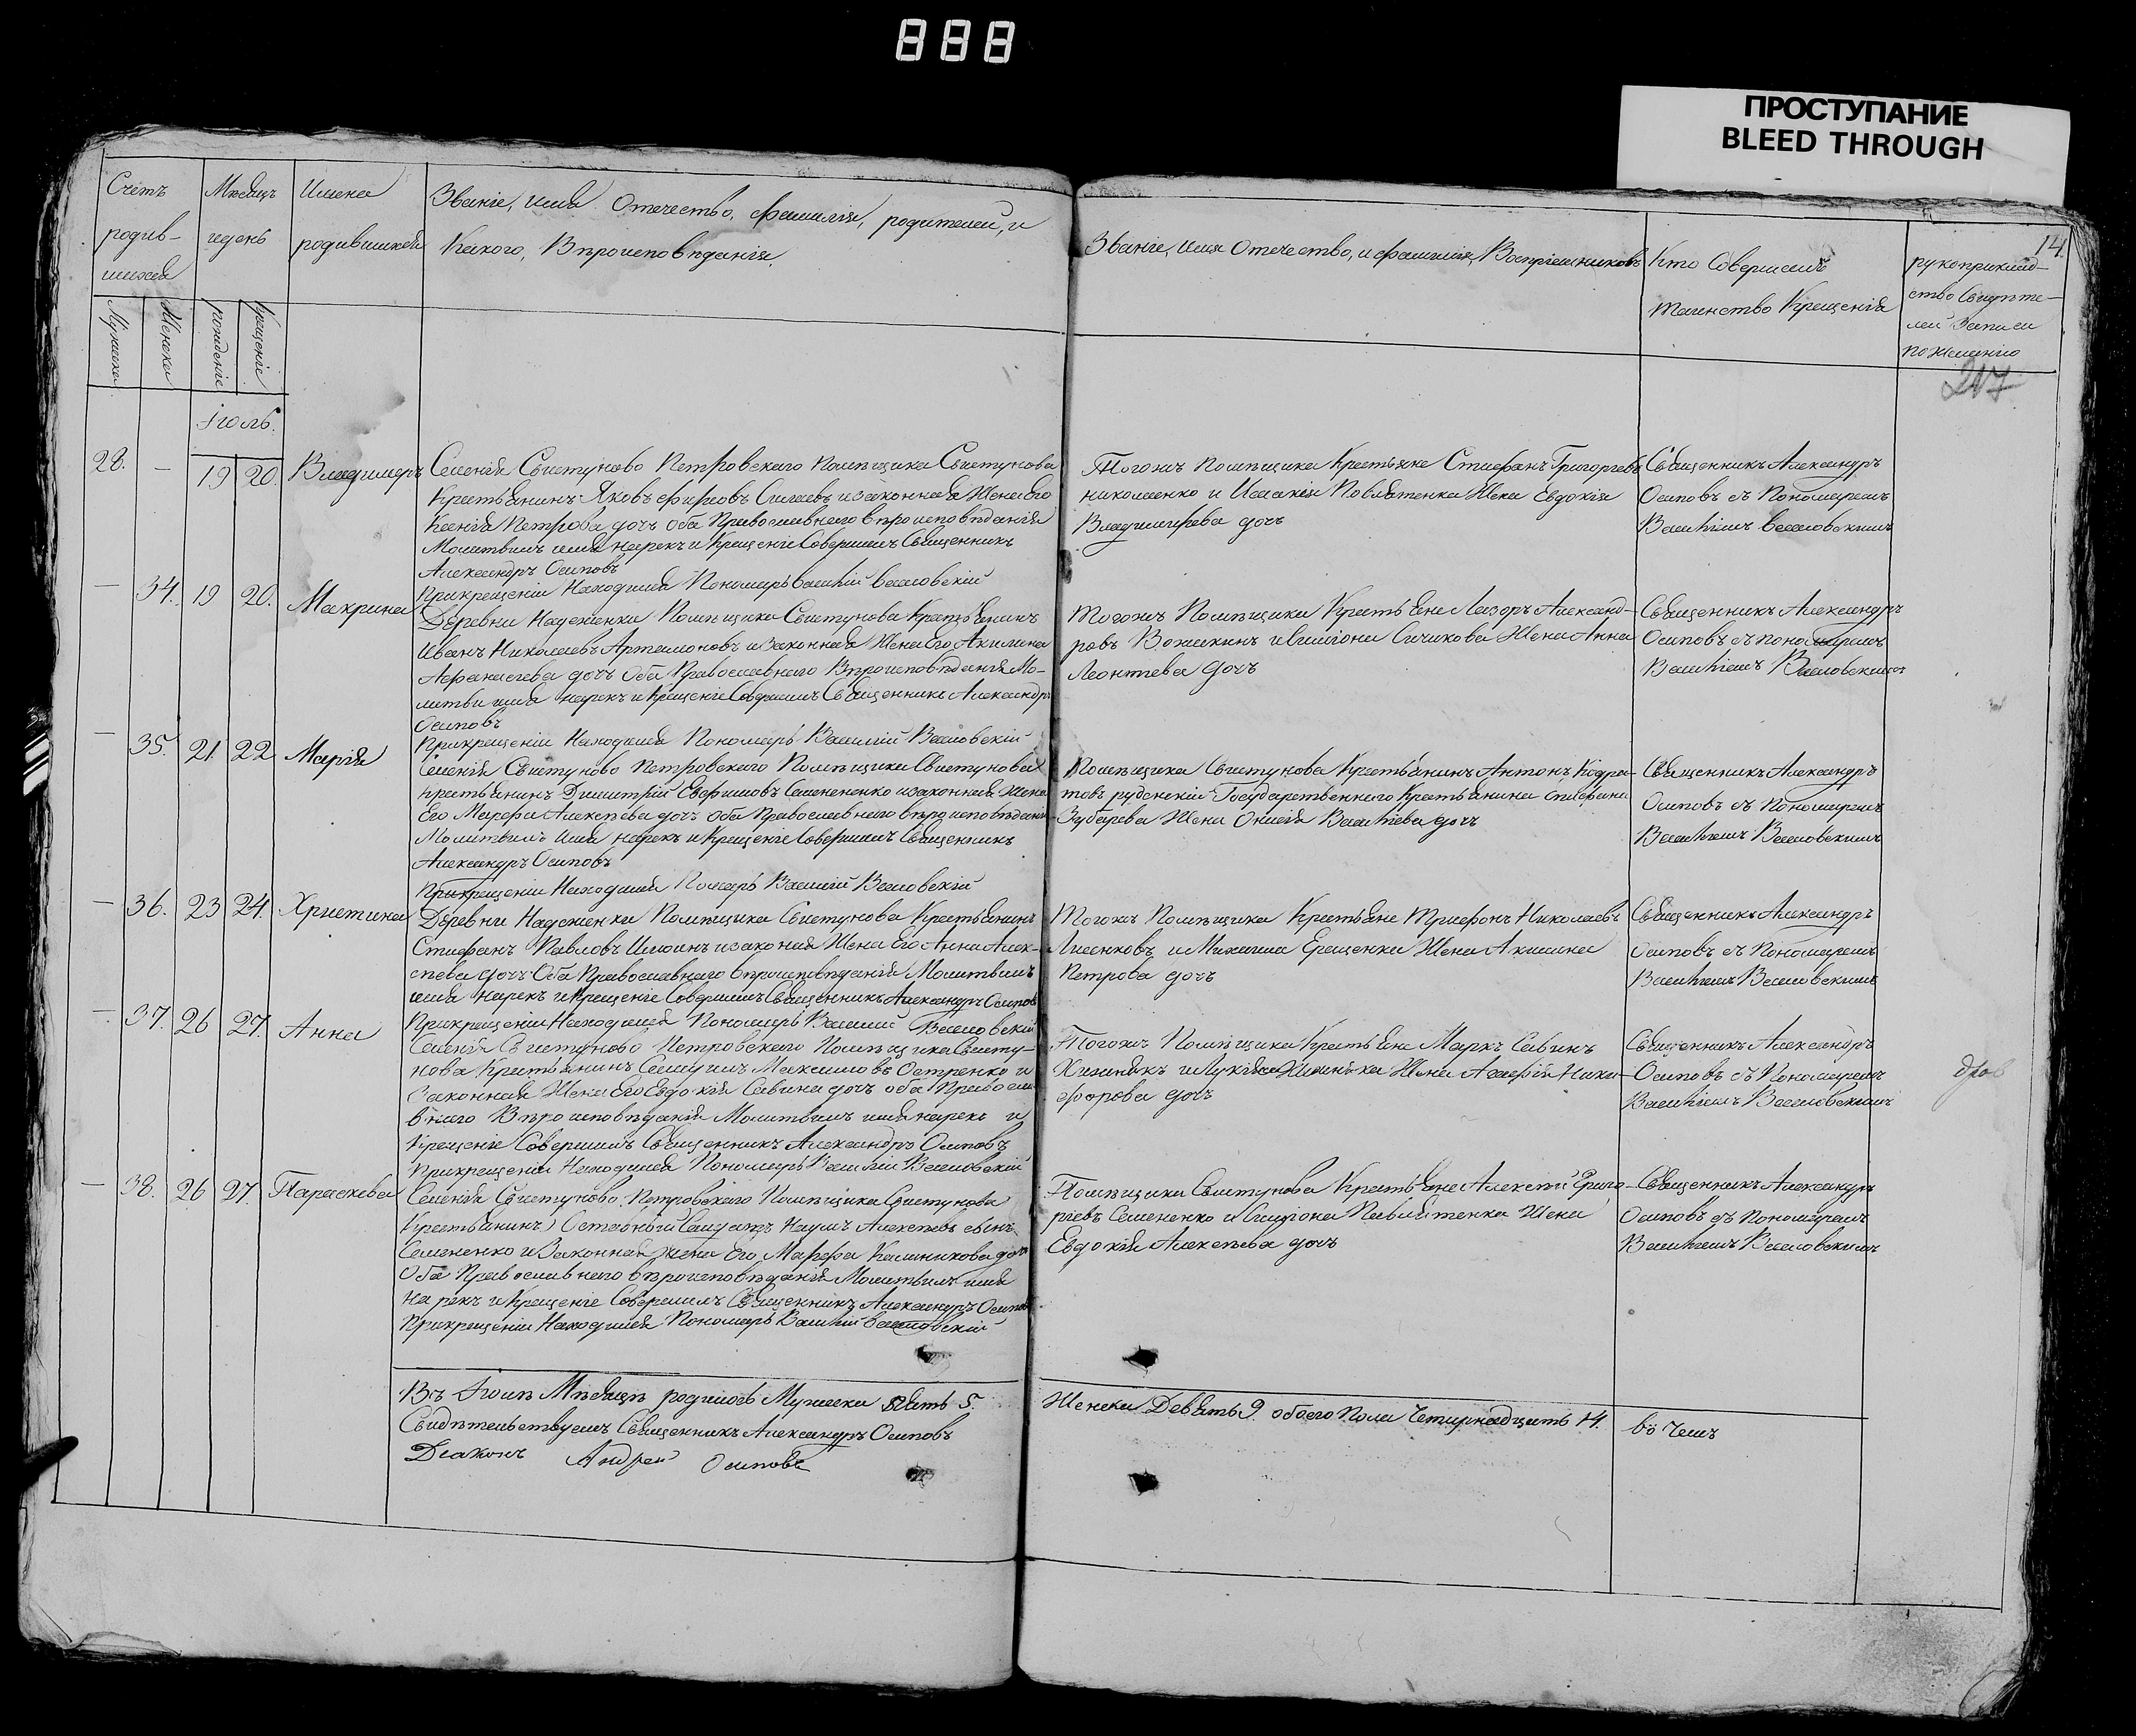 888
ПРОСТУПАНИЕ
BLEED THROUGH
14.
Счетъ
родив-
шихся
Мужеска
Женска
Мѣсяцъ
идень
рожденіе
Крещеніе
Имена
родившихся
Званіе, имя Отечество, фамилія, родителей, и
Какого, Вѣроисповѣданія
Званіе, имя Отечество, и фамилія, Воспріемниковъ
Кто Совершалъ
таинство Крещенія
рукоприклад-
ство Свидѣте-
лей Записи
по Желанію
217
Іюль.
28. — 19 20. Владимеръ
Селенія Свистуново Петровскаго помѣщика Свистунова
Крестьянинъ Яковъ законная Жена Его
Ксенія Петрова дочь оба Православнаго вѣроисповѣданія
Молитвилъ имя нарекъ и Крещеніе Совершилъ Священникъ
Александръ Осиповъ
При крещеніи Находился Пономарь Василій Васловскій
Тогожъ помѣщика Крестьяне Стефанъ Григорьевъ
николаенко и Жена Евдокія
Владимирова дочь
Священникъ Александръ
Осиповъ съ Пономаремъ
Василіемъ Васловскимъ
— 34. 19 20. Макрина
Деревни Надеженки Помѣщика Свистунова Крестьянинъ
Иванъ Николаевъ Артамоновъ и Законная Жена Его Акилина
Афанасиева дочь Оба Православнаго Вѣроисповѣданія Мо-
литви имя нарекъ и Крещеніе Совершилъ Священникъ Александръ
Осиповъ
При крещеніи Находился Пономарь Василій Васловскій
Тогожъ Помѣщика Крестьяне Лазорь Александ-
ровъ Жена Анна
Леонтева дочь
Священникъ Александръ
Осиповъ съ пономаремъ
Василіемъ Васловскимъ
— 35. 21. 22 Марія
Селенія Свистуново Петровскаго Помѣщика Свистунова
крестьянинъ Димитрій Евфимовъ Семененко изаконная Жена
Его Марфа Алексѣева дочь оба Православнаго вѣроисповѣданія
Молитвилъ имя нарекъ и Крещеніе Совершилъ Священникъ
Александръ Осиповъ
При крещеніи Находился Помарь Василій Васловскій
Помѣщика Свистунова Крестьянинъ Антонъ Кодра-
товъ руденскій Государственнаго Крестьянина Стефана
Зубарева Жена Васильева дочь
Священникъ Александръ
Осиповъ съ Пономаремъ
Василіемъ Васловскимъ
— 36. 23 24. Христина
Деревни Надеженки Помѣщика Свистунова Крестьянинъ
Стефанъ Павловъ изаконая Жена Его Анна Алек-
сѣева дочь Оба Православнаго вѣроисповѣданія Молитвилъ
имя нарекъ и Крещеніе Совершилъ Священникъ Александръ Осиповъ
При крещеніи Находился Пономарь Василій Васловскій
Тогожъ Помѣщика Крестьяне Трифонъ Николаевъ
и Михаила Ерещенка Жена Акилина
Петрова дочь
Священникъ Александръ
Осиповъ съ Пономаремъ
Василіемъ Васловскимъ
— 37. 26 27. Анна
Селенія Свистуново Петровскаго Помѣщика Свисту-
нова Крестьянинъ Самуилъ Максимовъ Остренко и
Законная Жена Его Евдокія Савина дочь оба Правосла-
внаго Вѣроисповѣданія Молитвилъ имя нарекъ и
Крещеніе Совершилъ Священникъ Александръ Осиповъ
При крещеніи Находился Пономарь Василій Васловскій
Тогожъ Помѣщика Крестьяне Маркъ Савинъ
Хижнякъ и Жена Агафія Ники-
форова дочь
Священникъ Александръ
Осиповъ съ Пономаремъ
Василіемъ Васловскимъ
— 38. 26 27. Параскева
Селенія Свистуново Петровскаго Помѣщика Свистунова
Крестьянинъ) Наумъ Алексѣевъ сынъ
Семененко и Законная жена Его Марфа Калинникова дочь
Оба Православнаго вѣроисповѣданія Молитвилъ имя
На рекъ и Крещеніе Совершилъ Священникъ Александръ Осиповъ
При крещеніи Находился Пономарь Василій Васловскій
Помѣщика Свистунова Крестьяне Алексѣй Григо-
ріевъ Семененко и Жена
Евдокія Алексѣева дочь
Священникъ Александръ
Осиповъ съ Пономаремъ
Василіемъ Васловскимъ
Въ Іюлѣ Мѣсяцѣ родилось Мужеска Пять 5.
Женска Девять 9 обоего Пола Четырнадцать 14. во Чемъ
Свидѣтельствуемъ Священникъ Александръ Осиповъ
Діаконъ Андрей Осиповъ